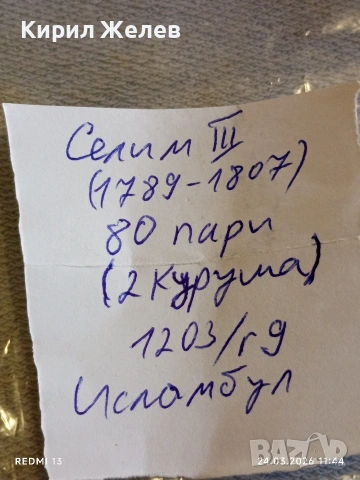 Кирил Желев
Селим III
(1789-1807)
80 пари
(2 куруша)
1203/г9
Исламбул
REDMI 13
24.03.2026 11:44
BAZAR